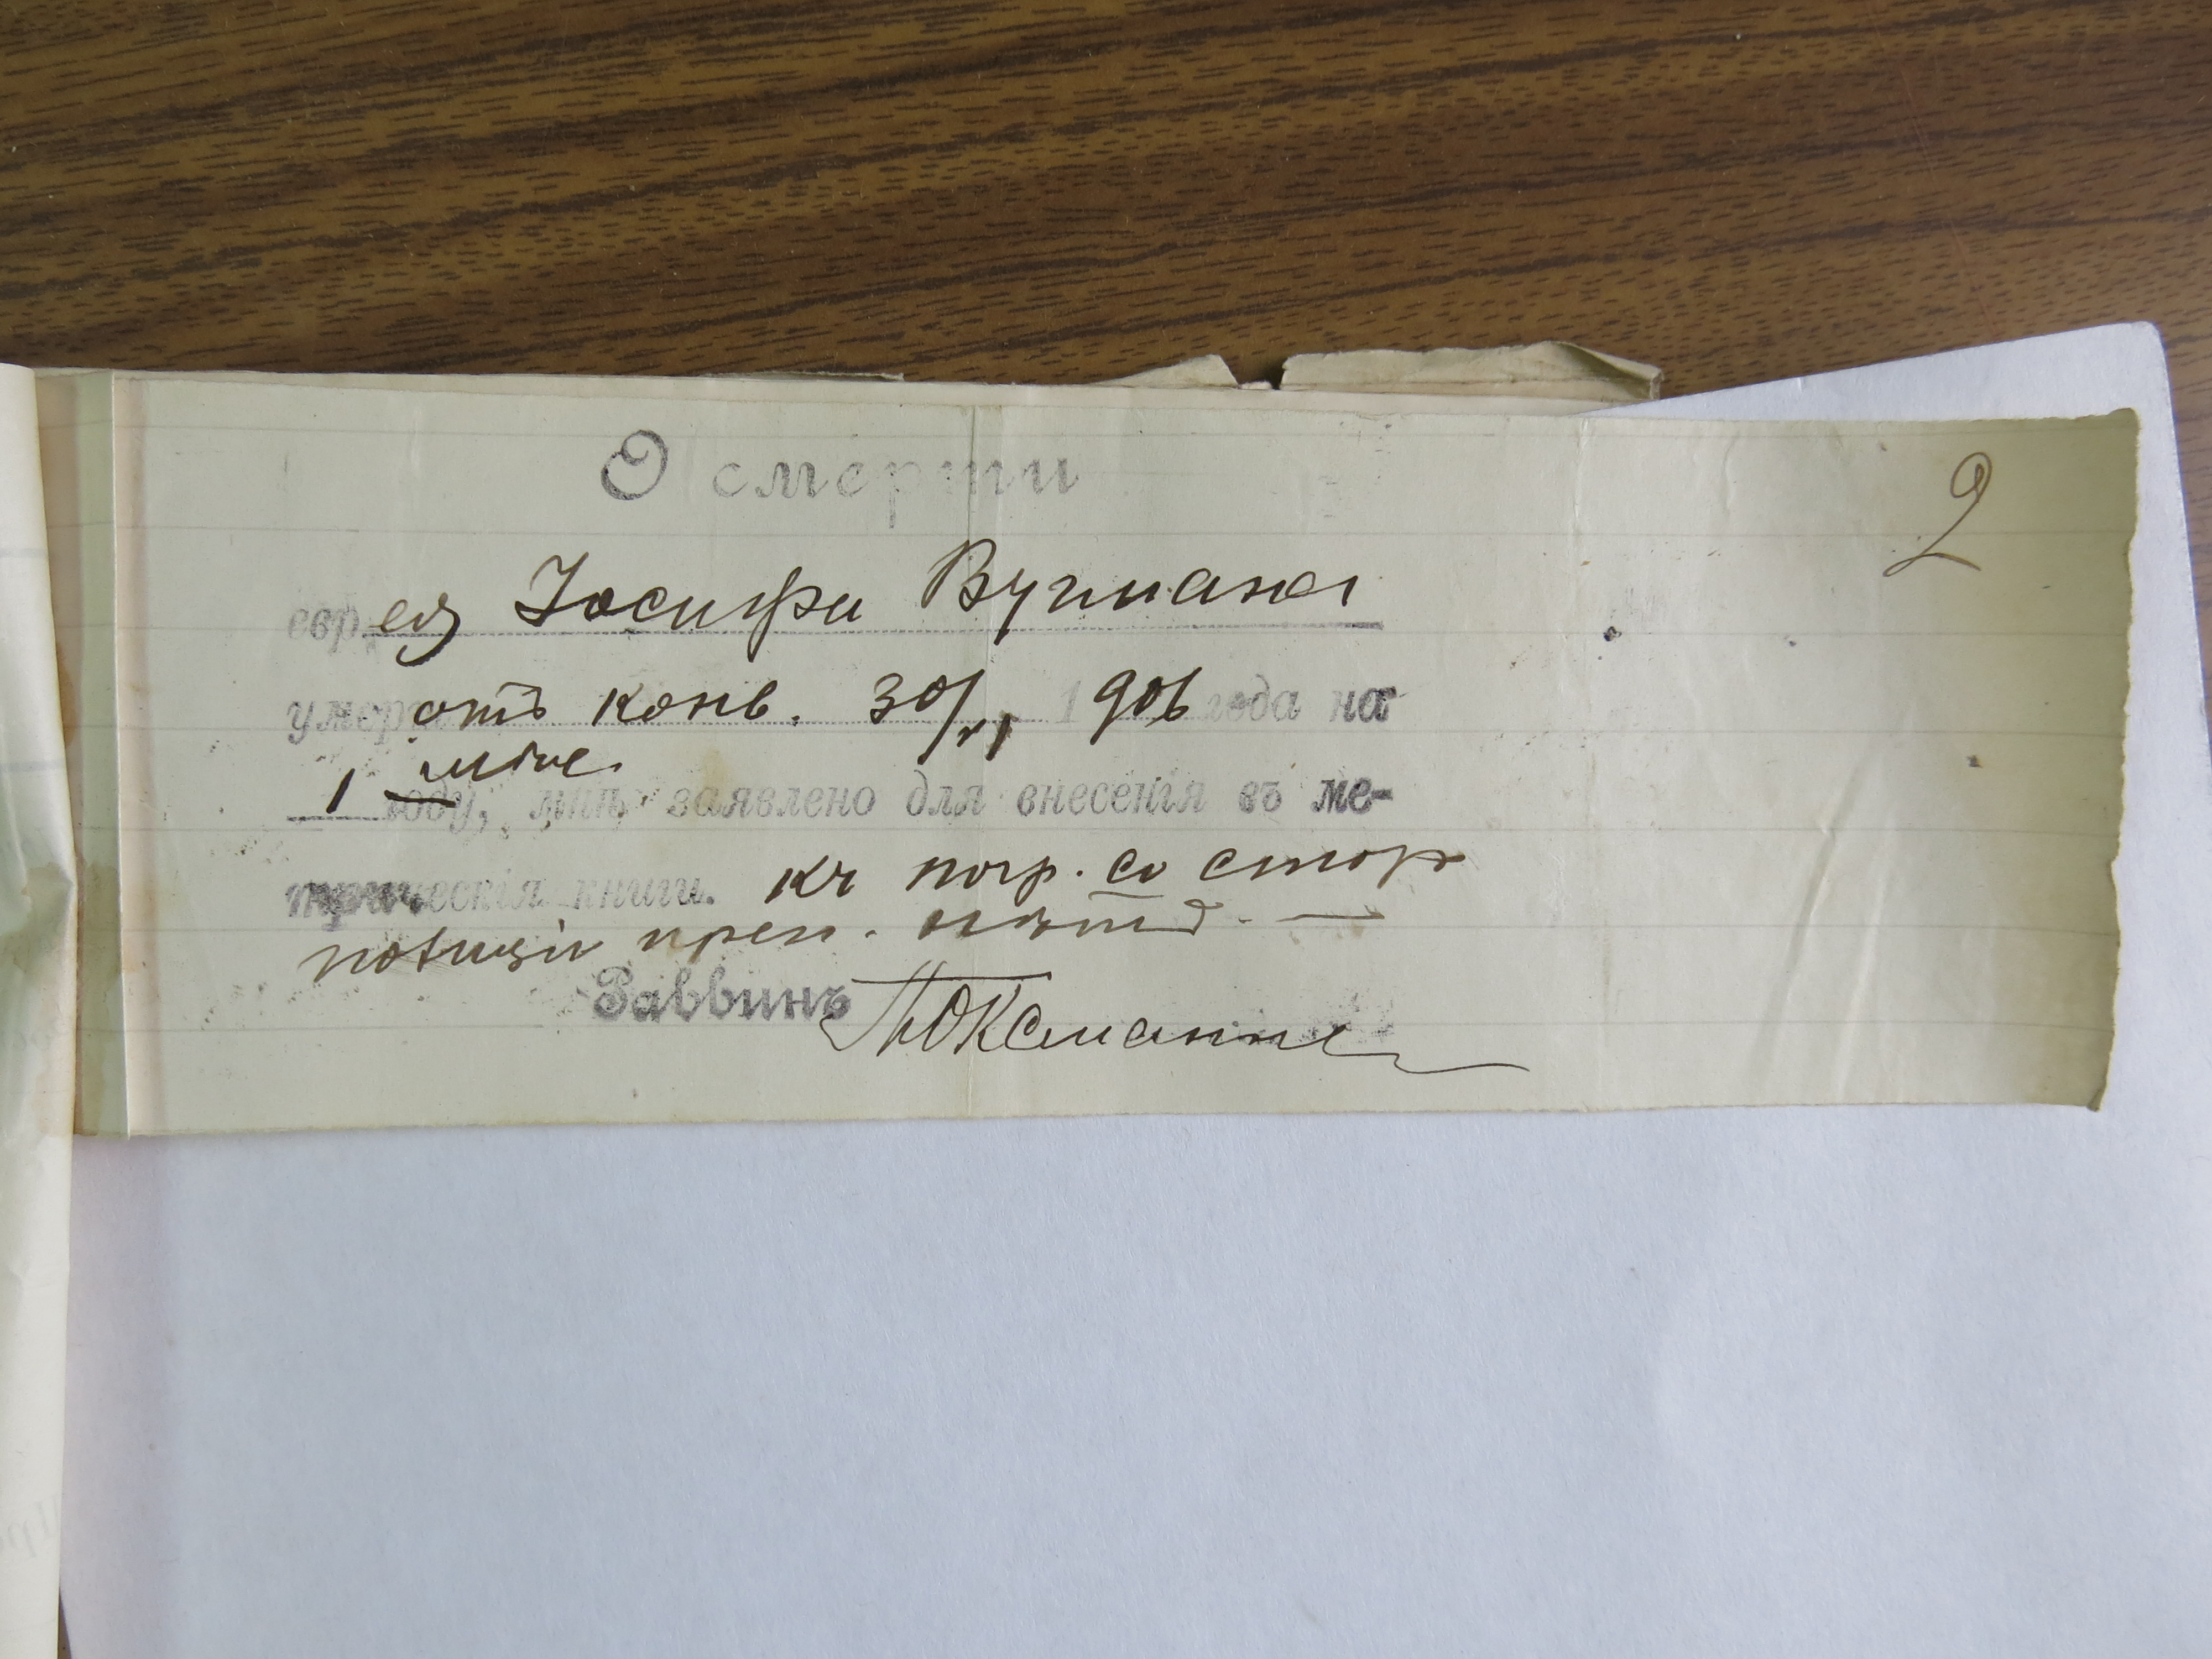 О смерти
2
еврея Іосифа Вугмана
умер отъ конв. 30/VI 1906 года на
1 мѣс.
году, мнѣ заявлено для внесенія въ ме-
трическія книги. Къ погр. со стор
полиціи преп. нѣтъ. —
Раввинъ ПОксманъ